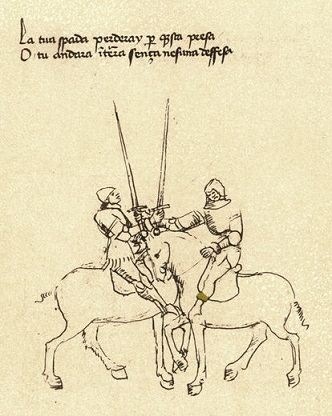 La tua spada perderay p q̃sta presa
O tu andara ĩt̃ra sença nesuna deffesa